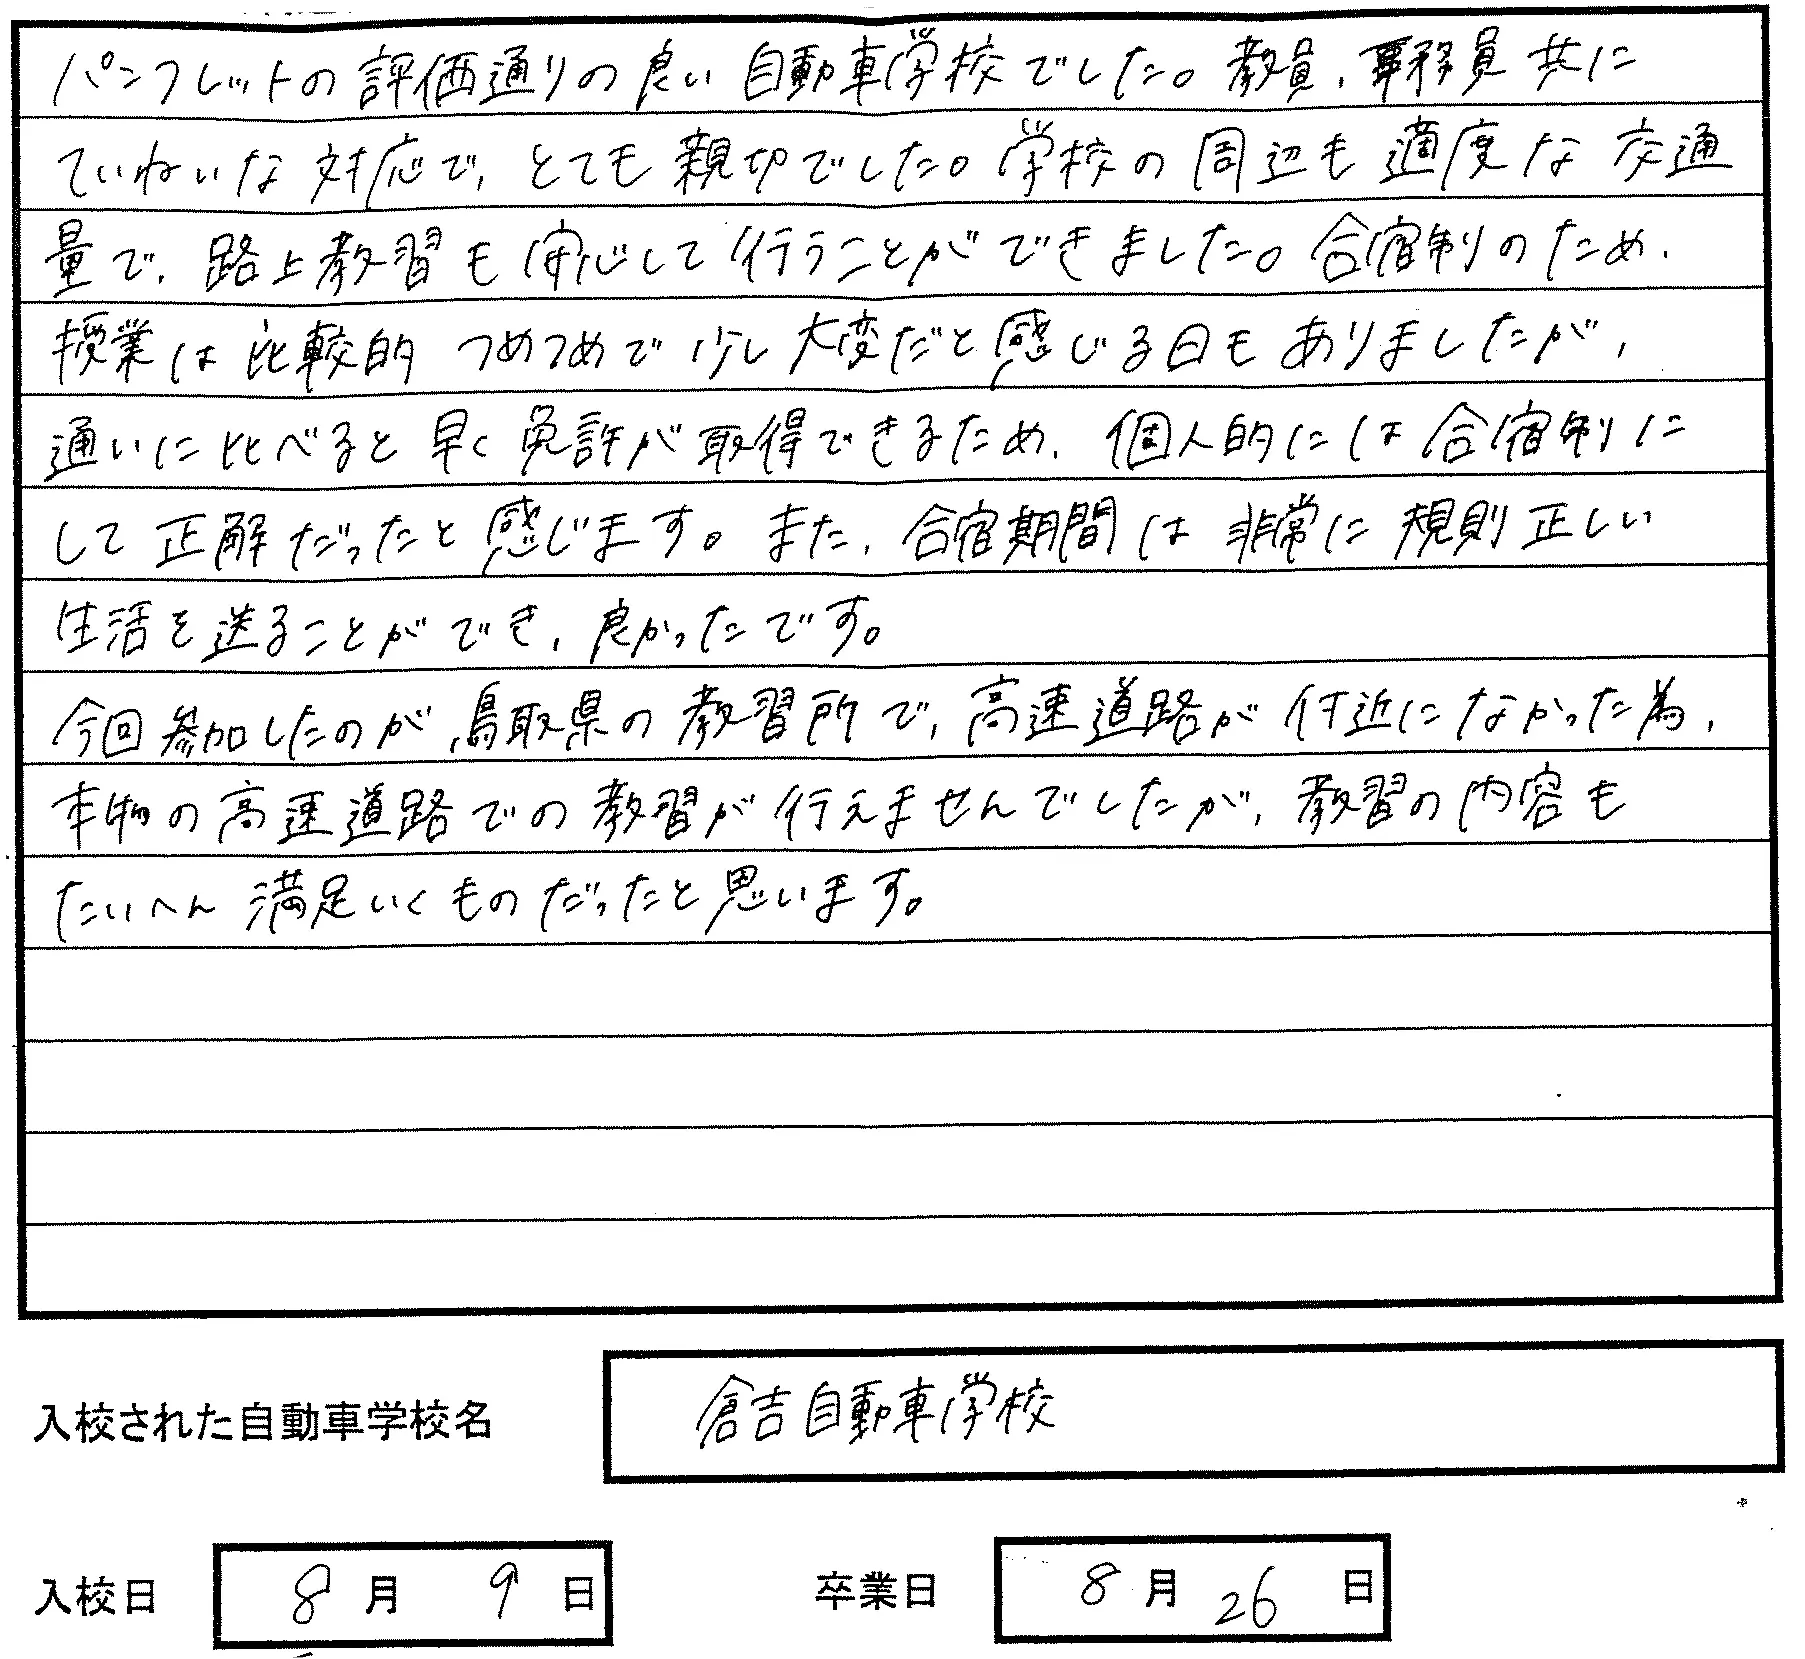 パンフレットの評価通りの良い自動車学校でした。教員、事務員共に
ていねいな対応で、とても親切でした。学校の周辺も適度な交通
量で、路上教習も安心して行うことができました。合宿制のため、
授業は比較的つめつめで少し大変だと感じる日もありましたが、
通いに比べると早く免許が取得できるため、個人的には合宿制に
して正解だったと感じます。また、合宿期間は非常に規則正しい
生活を送ることができ、良かったです。
今回参加したのが鳥取県の教習所で、高速道路が付近になかった為、
本物の高速道路での教習が行えませんでしたが、教習の内容も
たいへん満足いくものだったと思います。
入校された自動車学校名 倉吉自動車学校
入校日 8月 9日 卒業日 8月 26日